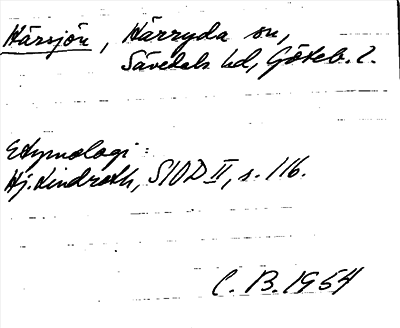 Härsjön, Härryda sn,
Sävedals hd, Göteb. l.
Etymologi:
Hj. Lindroth, SIOD II, s. 116.
C. B. 1954